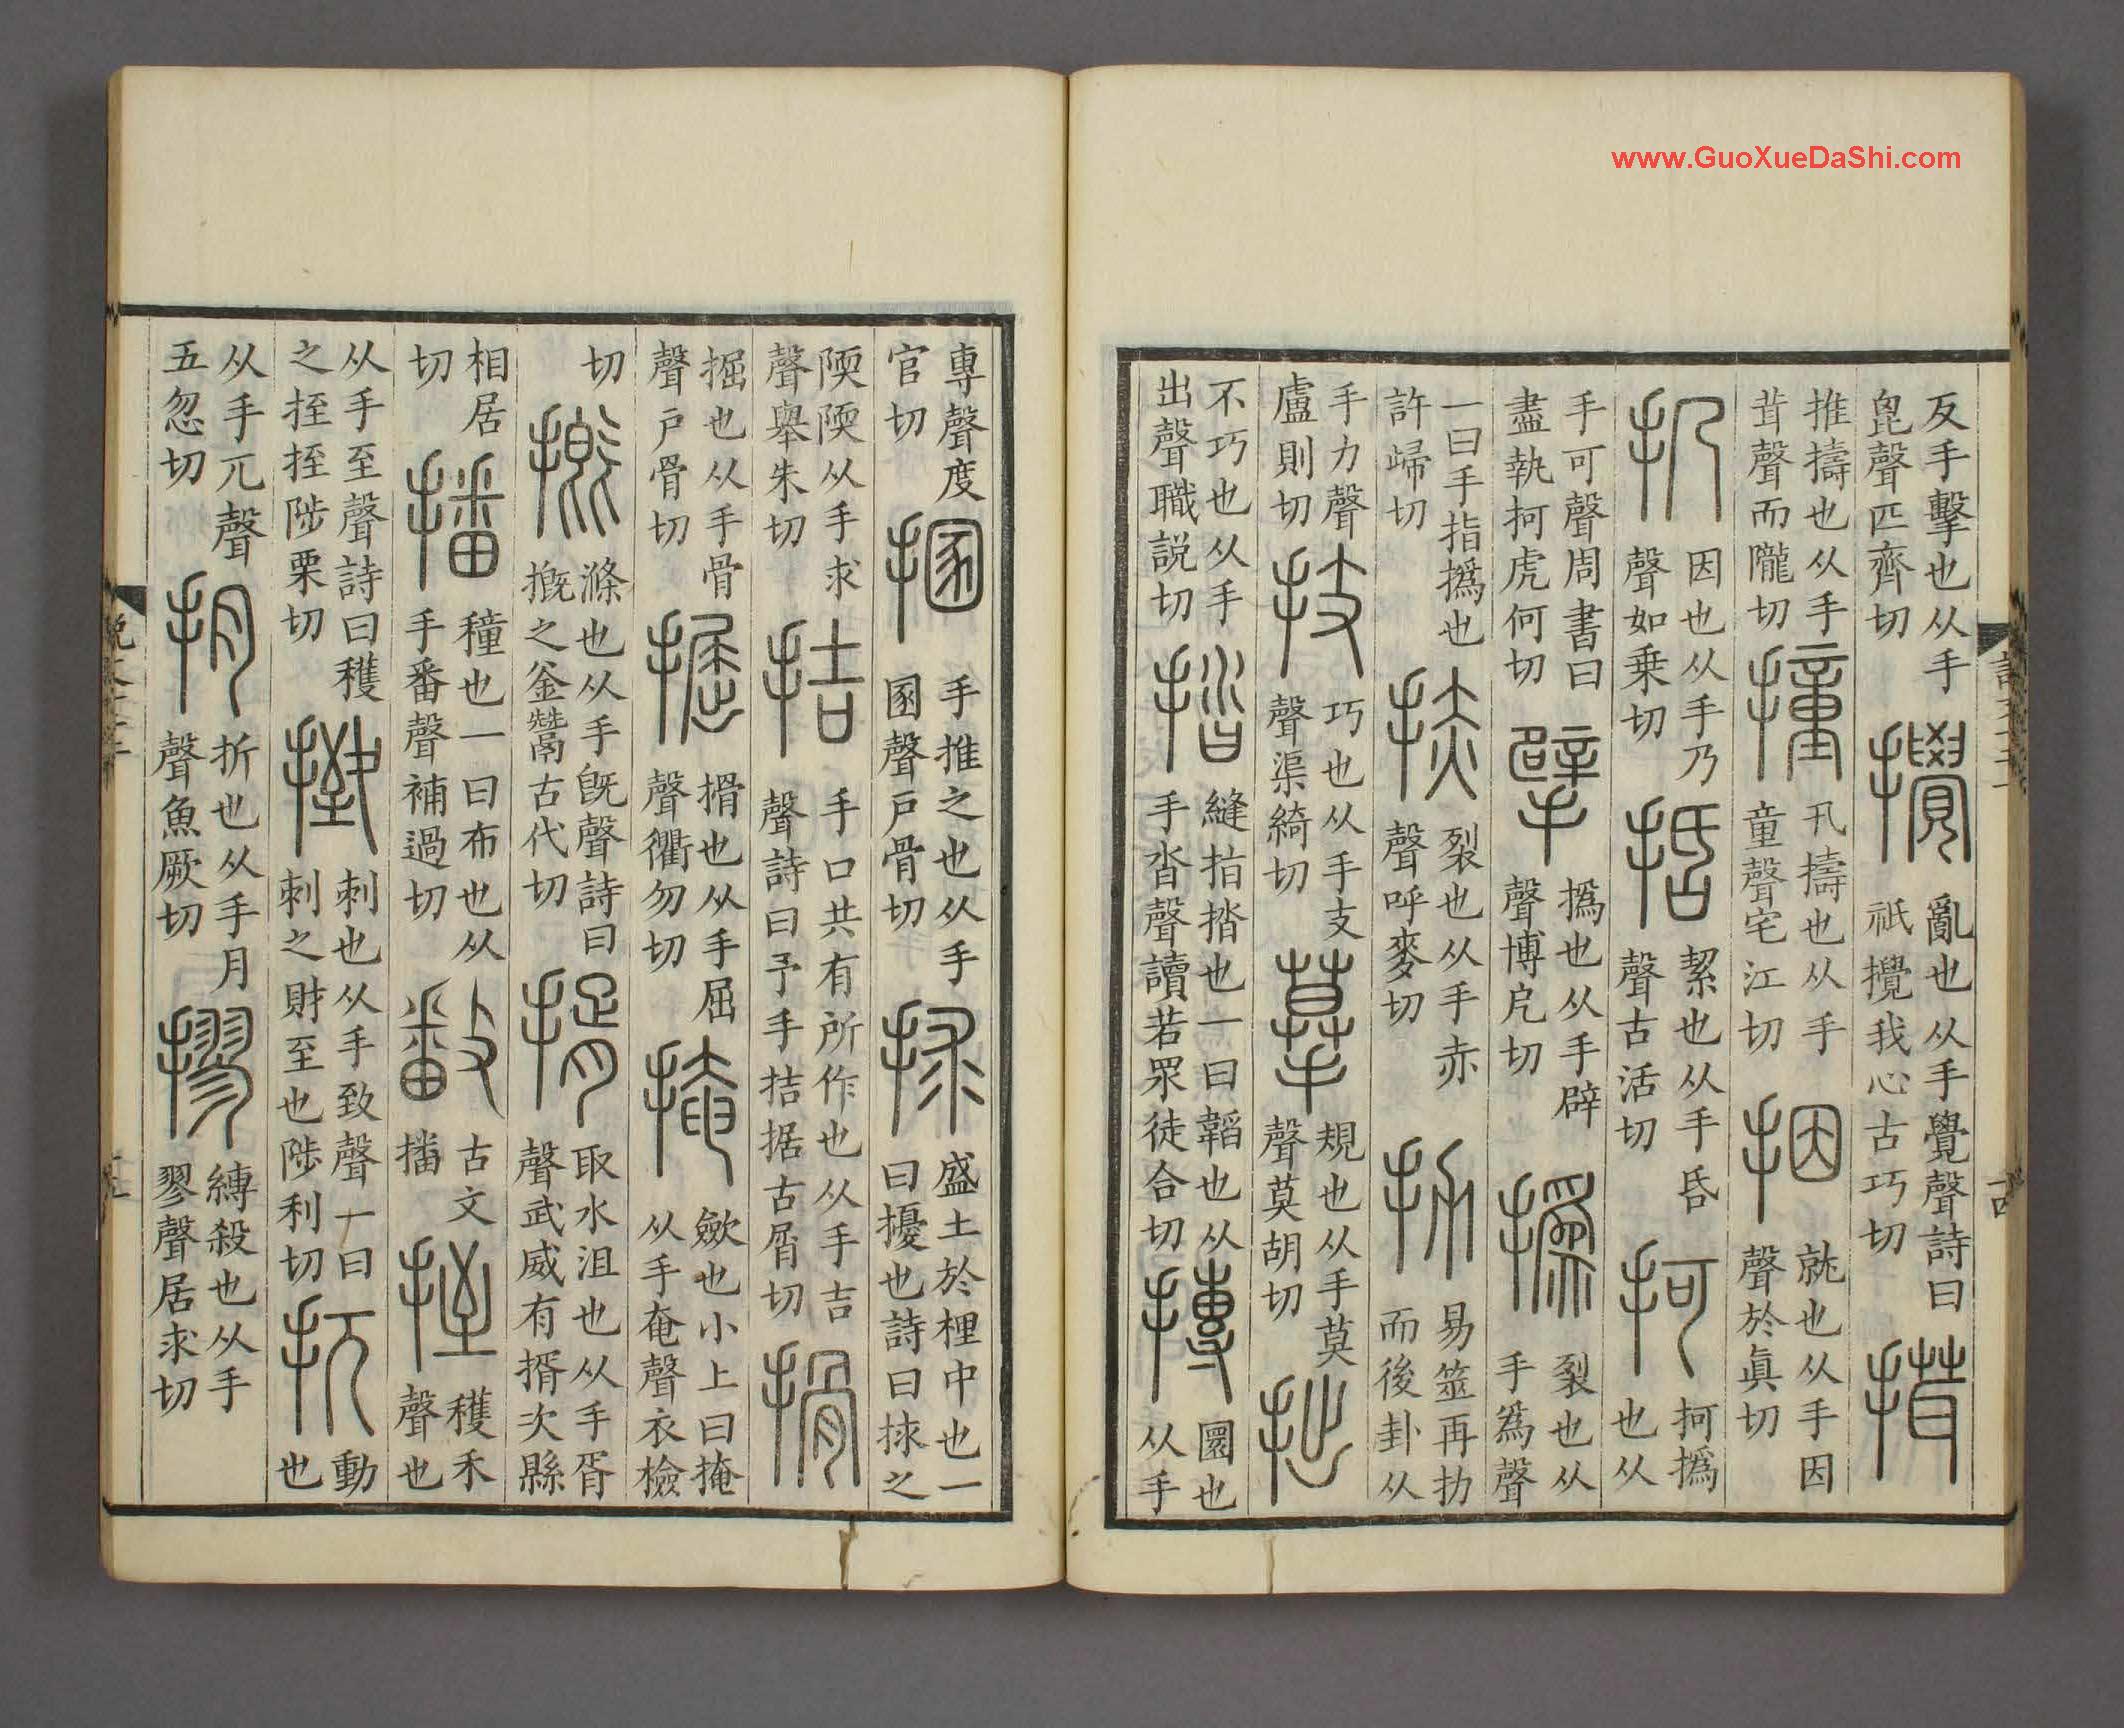 反手擊也从手毘聲匹齊切 攪 亂也从手覺聲詩曰祇攪我心古巧切 搑
推擣也从手茸聲而隴切 撞 卂擣也从手童聲宅江切 捆 就也从手因聲於眞切
扔 因也从手乃聲如乗切 括 絜也从手昏聲古活切 抲 抲撝也从
手可聲周書曰盡執抲虎何切 擘 撝也从手辟聲博戹切 撝 裂也从手爲聲
一曰手指撝也許歸切 捇 裂也从手赤聲呼麥切 扐 易筮再扐而後卦从
手力聲盧則切 技 巧也从手支聲渠綺切 摹 規也从手莫聲莫胡切 拙
不巧也从手出聲職説切 縫指也一曰韜也从手沓聲讀若眔徒合切 摶 圜也从手
專聲度官切 㨡 手推之也从手圂聲戶骨切 捄 盛土於梩中也一曰擾也詩曰捄之
陾陾从手求聲舉朱切 拮 手口共有所作也从手吉聲詩曰予手拮据古屑切 搰
掘也从手骨聲戶骨切 掘 搰也从手屈聲衢勿切 掩 斂也小上曰掩从手奄聲衣檢
切 摡 滌也从手旣聲詩曰摡之釜鬵古代切 揟 取水沮也从手胥聲武威有揟次縣
相居切 播 穜也一曰布也从手番聲補過切 𢿥 古文播 挃 穫禾聲也
从手至聲詩曰穫之挃挃陟栗切 刺也从手致聲一曰刺之財至也陟利切 扤 動也
从手兀聲五忽切 抈 折也从手月聲魚厥切 摎 縛殺也从手翏聲居求切
www.GuoXueDaShi.com